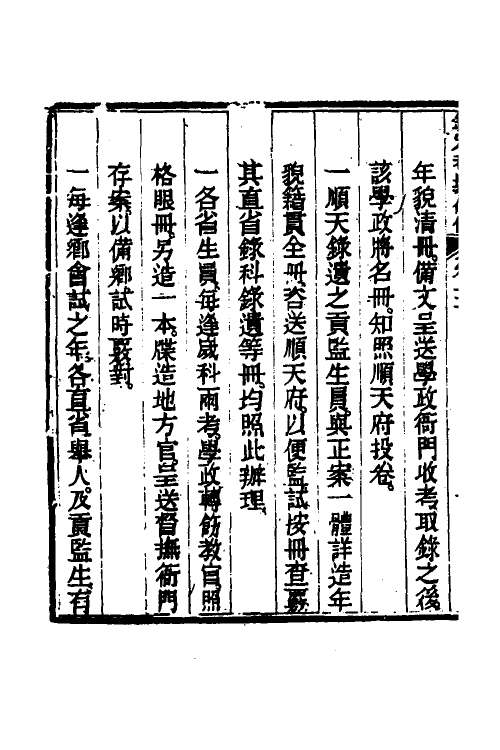 年貌清冊備文呈送學政衙門收考取錄之後
該學政將名冊知照順天府投卷
一順天錄遺之貢監生員與正案一體詳造年
貌籍貫全冊咨送順天府以便監試按冊查覈
其直省錄科錄遺等冊均照此辦理
一各省生員每逢歲科兩考學政轉飭教官照
格眼冊另造一本牒造地方官呈送督撫衙門
存案以備鄉試時覈對
一每逢鄉會試之年各直省舉人及貢監生有